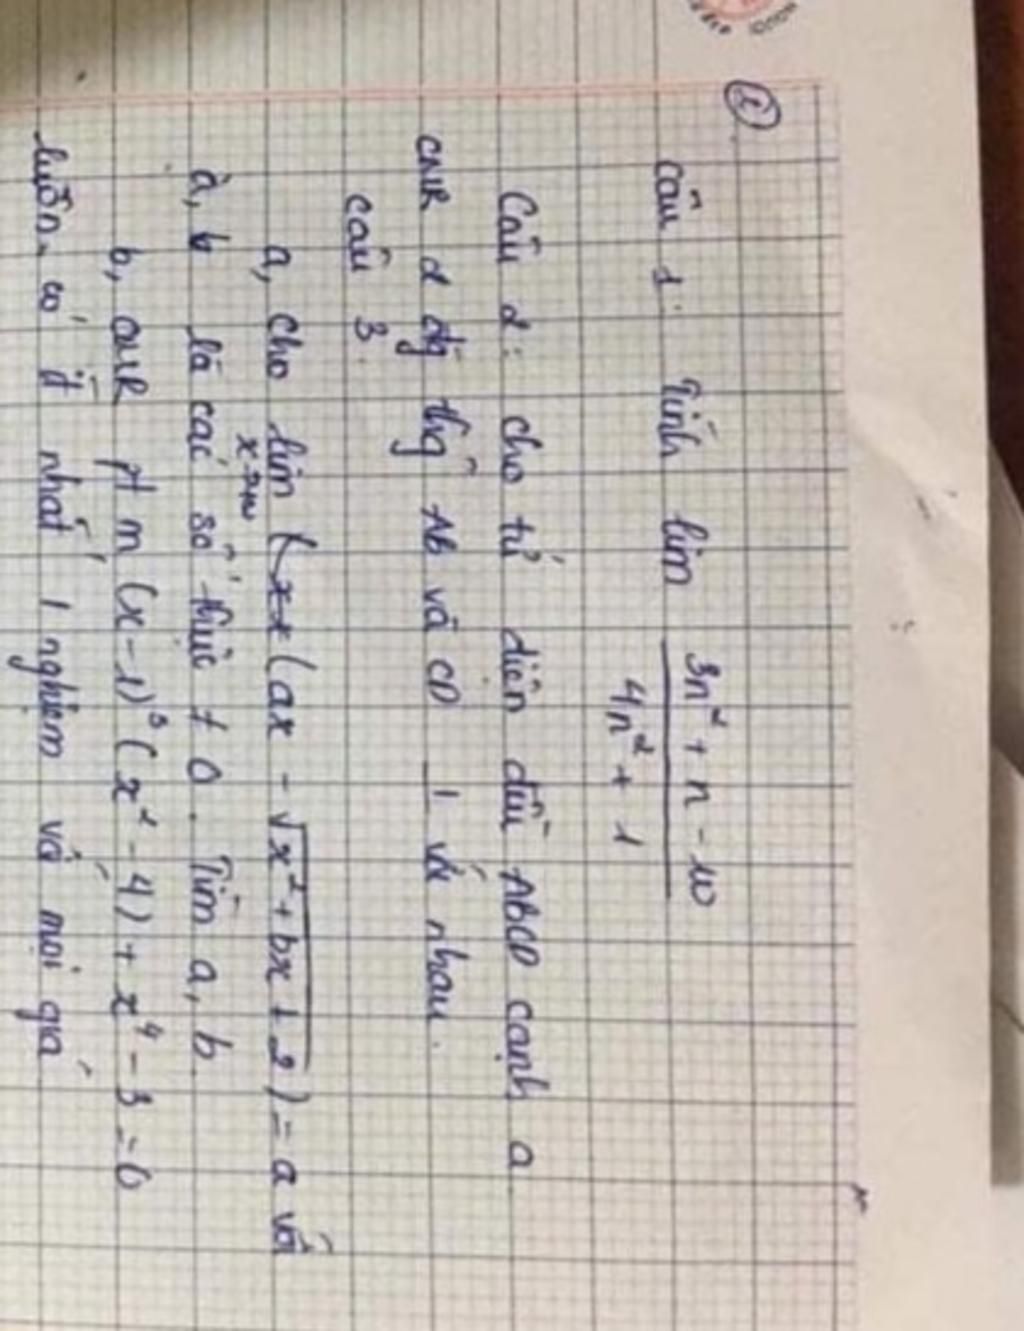 ①
Câu 1: Tính lim (3n² + n - 10) / (4n² + 1)
Câu 2: cho tứ diện đều ABCD cạnh a
CMR 2 đg thg AB và CD ⊥ với nhau.
câu 3.
a, cho lim x→+∞ (ax - √(x² + bx + 2)) = a với
a, b là các số thực ≠ 0. Tìm a, b.
b, CMR pt m(x-1)³(x² - 4) + x⁴ - 3 = 0
luôn có ít nhất 1 nghiệm với mọi giá